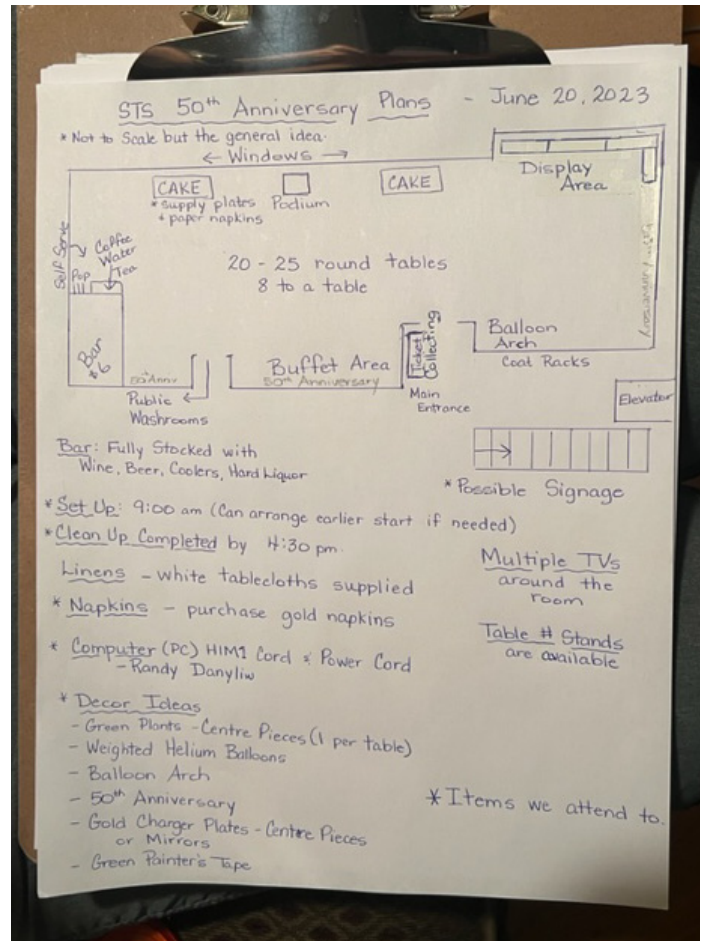 STS 50th Anniversary Plans - June 20, 2023
* Not to Scale but the general idea.
← Windows →
Display
Area
CAKE
* supply plates
+ paper napkins
Podium
CAKE
Self Serve
Coffee
Water
Tea
Pop
20 - 25 round tables
8 to a table
50th Anniversary
Bar
#6
50th Anniv
Public
Washrooms
Buffet Area
50th Anniversary
Ticket
Collecting
Main
Entrance
Balloon
Arch
Coat Racks
Elevator
* Possible Signage
Bar: Fully Stocked with
Wine, Beer, Coolers, Hard Liquor
* Set Up: 9:00 am (Can arrange earlier start if needed)
* Clean Up Completed by 4:30 pm.
Linens - white tablecloths supplied
* Napkins - purchase gold napkins
* Computer (PC) HIM1 Cord & Power Cord
- Randy Danyliw
Multiple TVs
around the
room
Table # Stands
are available
* Decor Ideas
- Green Plants - Centre Pieces (1 per table)
- Weighted Helium Balloons
- Balloon Arch
- 50th Anniversary
- Gold Charger Plates - Centre Pieces
or Mirrors
- Green Painter's Tape
* Items we attend to.